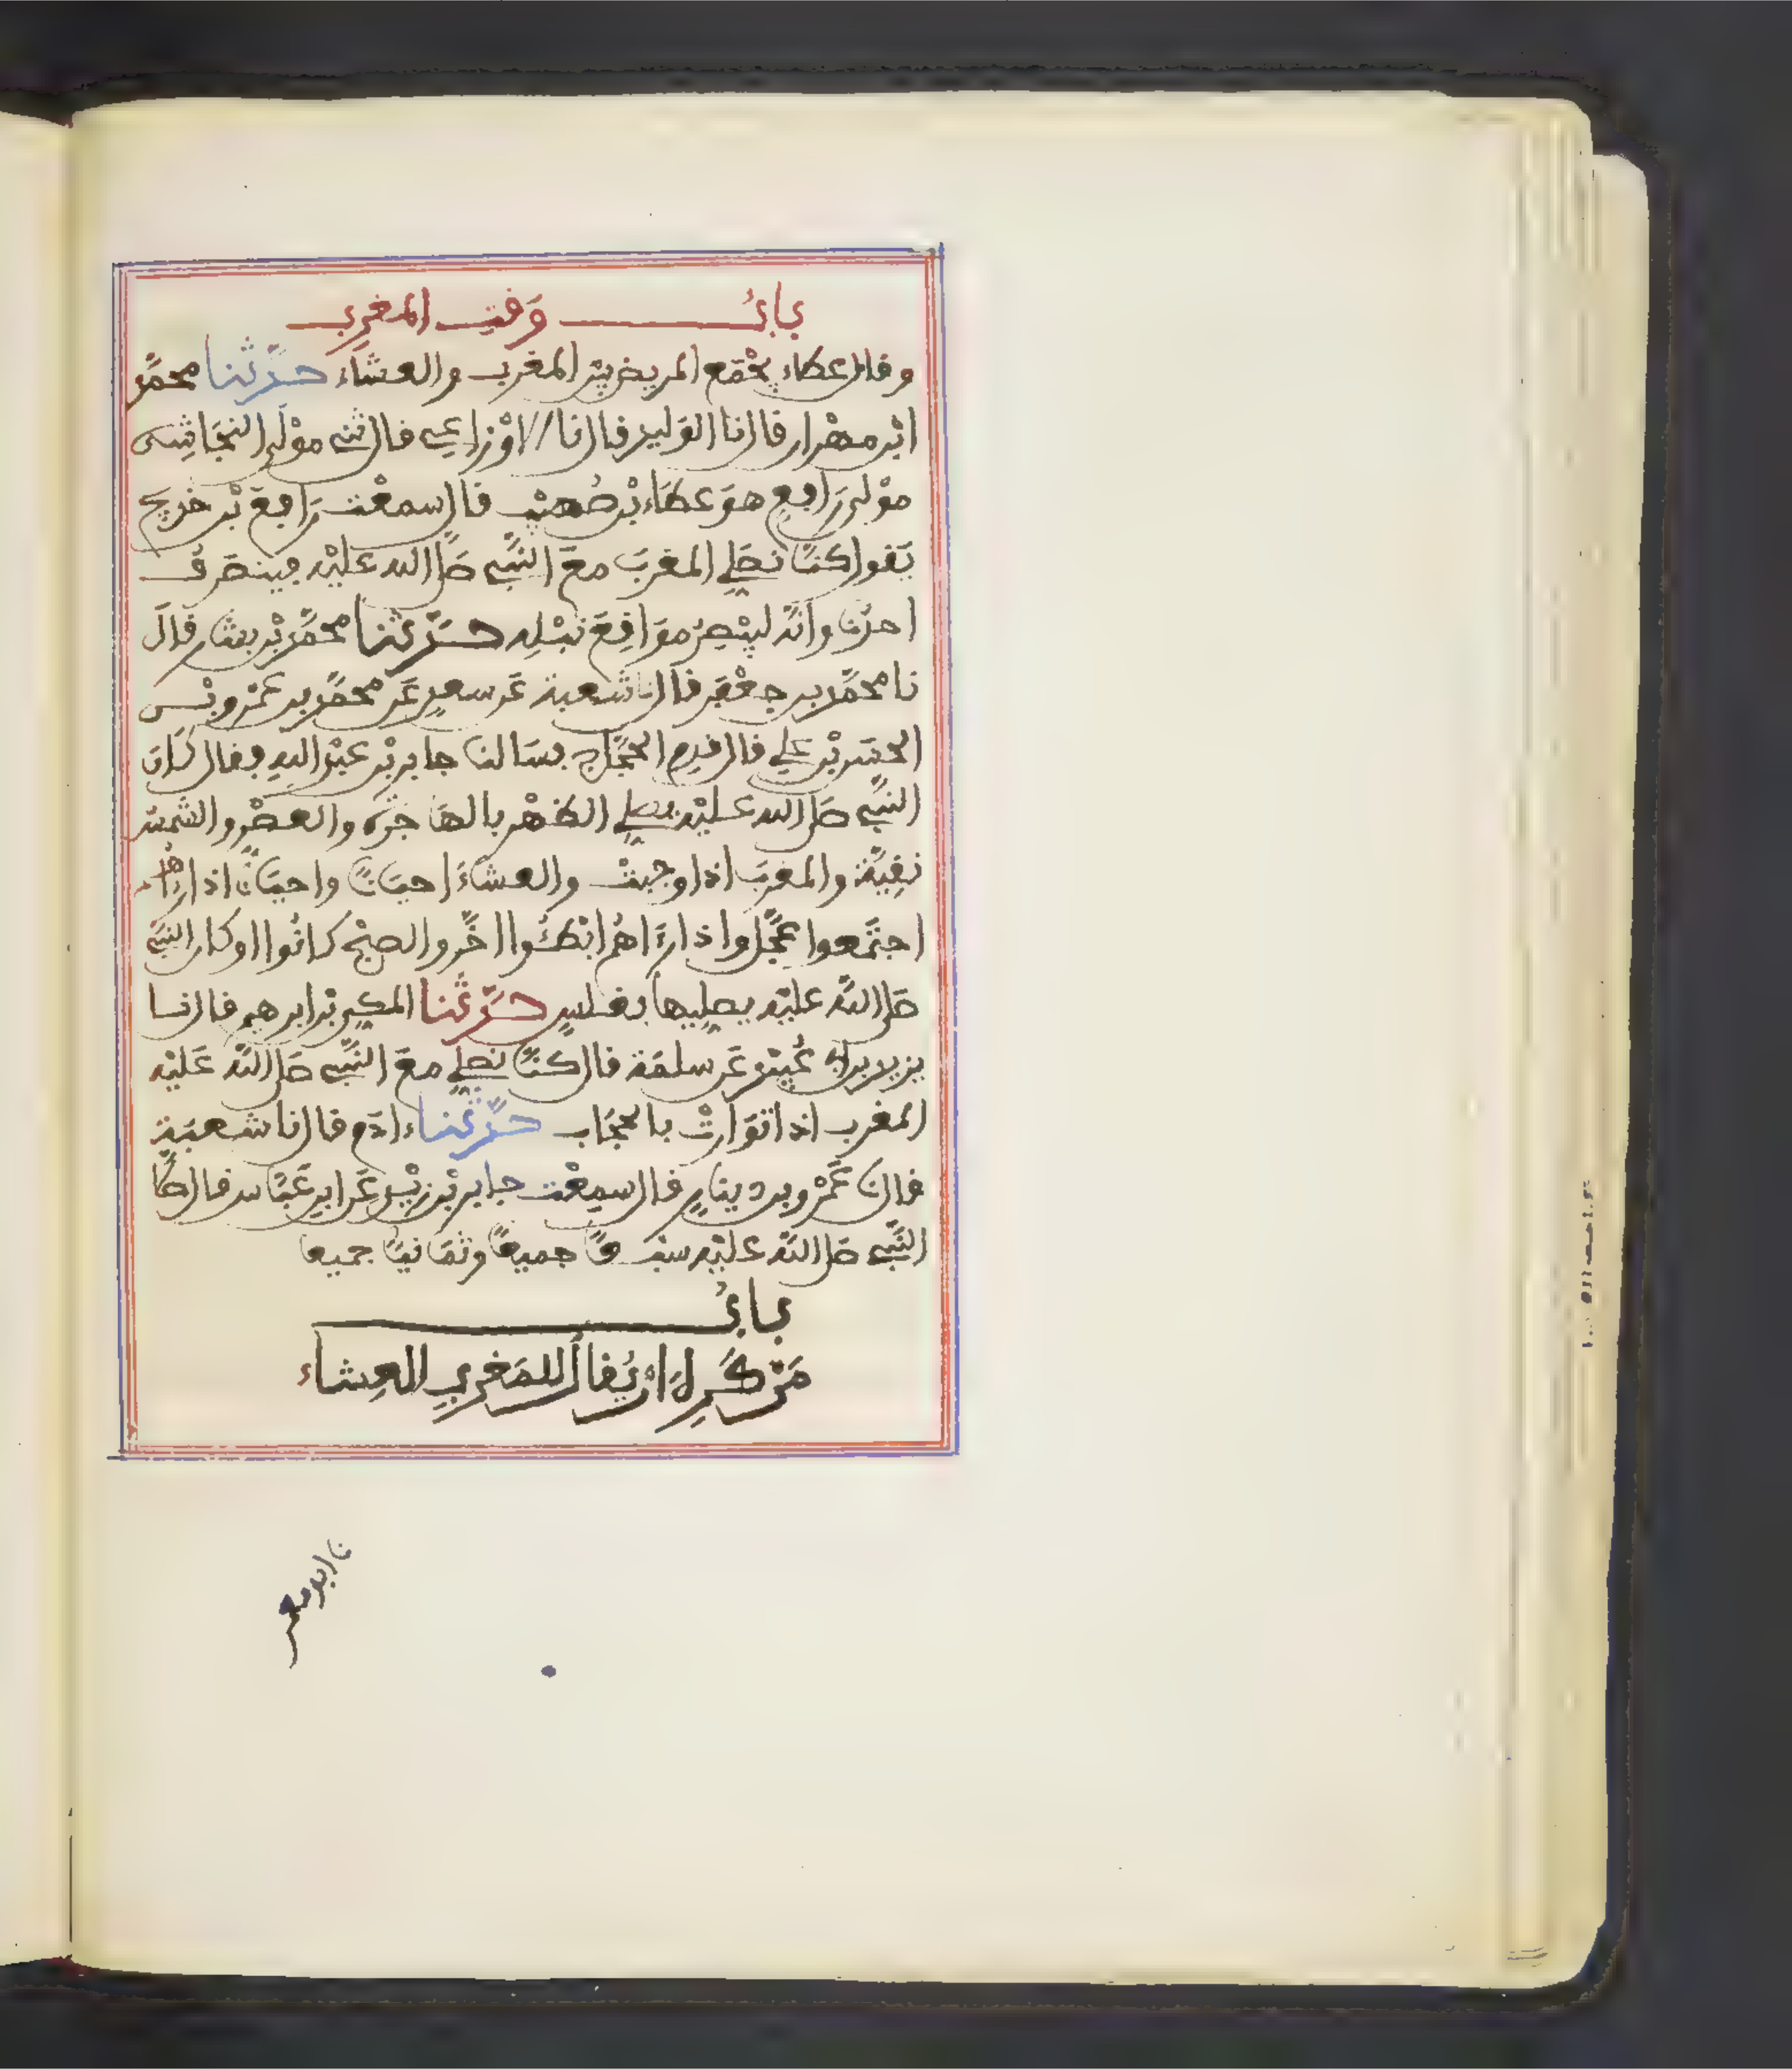 باب وقت المغرب
وقال عطاء يجمع المريض بين المغرب والعشاء حدثنا محمد
ابن مهران قال نا الوليد قال نا الاوزاعي قال ثني مولى النجاشي
مولى رافع هو عطاء بن صهيب قال سمعت رافع بن خديج
يقول كنا نصلي المغرب مع النبي صلى الله عليه فينصرف
احدنا وانه ليبصر مواقع نبله حدثنا محمد بن بشار قال
نا محمد بن جعفر قال نا شعبة عن سعد عن محمد بن عمرو بن
الحسن بن علي قال قدم الحجاج فسالنا جابر بن عبد الله فقال كان
النبي صلى الله عليه يصلي الظهر بالهاجرة والعصر والشمس
نقية والمغرب اذا وجبت والعشاء احيانا واحيانا اذا راهم
اجتمعوا عجل واذا راهم ابطئوا اخر والصبح كانوا او كان النبي
صلى الله عليه يصليها بغلس حدثنا المكي بن ابرهيم قال نا
يزيد بن ابي عبيد عن سلمة قال كنا نصلي مع النبي صلى الله عليه
المغرب اذا توارت بالحجاب حدثنا ءادم قال نا شعبة
قال نا عمرو بن دينار قال سمعت جابر بن زيد عن ابن عباس قال صلى
النبي صلى الله عليه سبعا جميعا وثمانيا جميعا
باب
من كره ان يقال للمغرب العشاء
نا ابو معمر